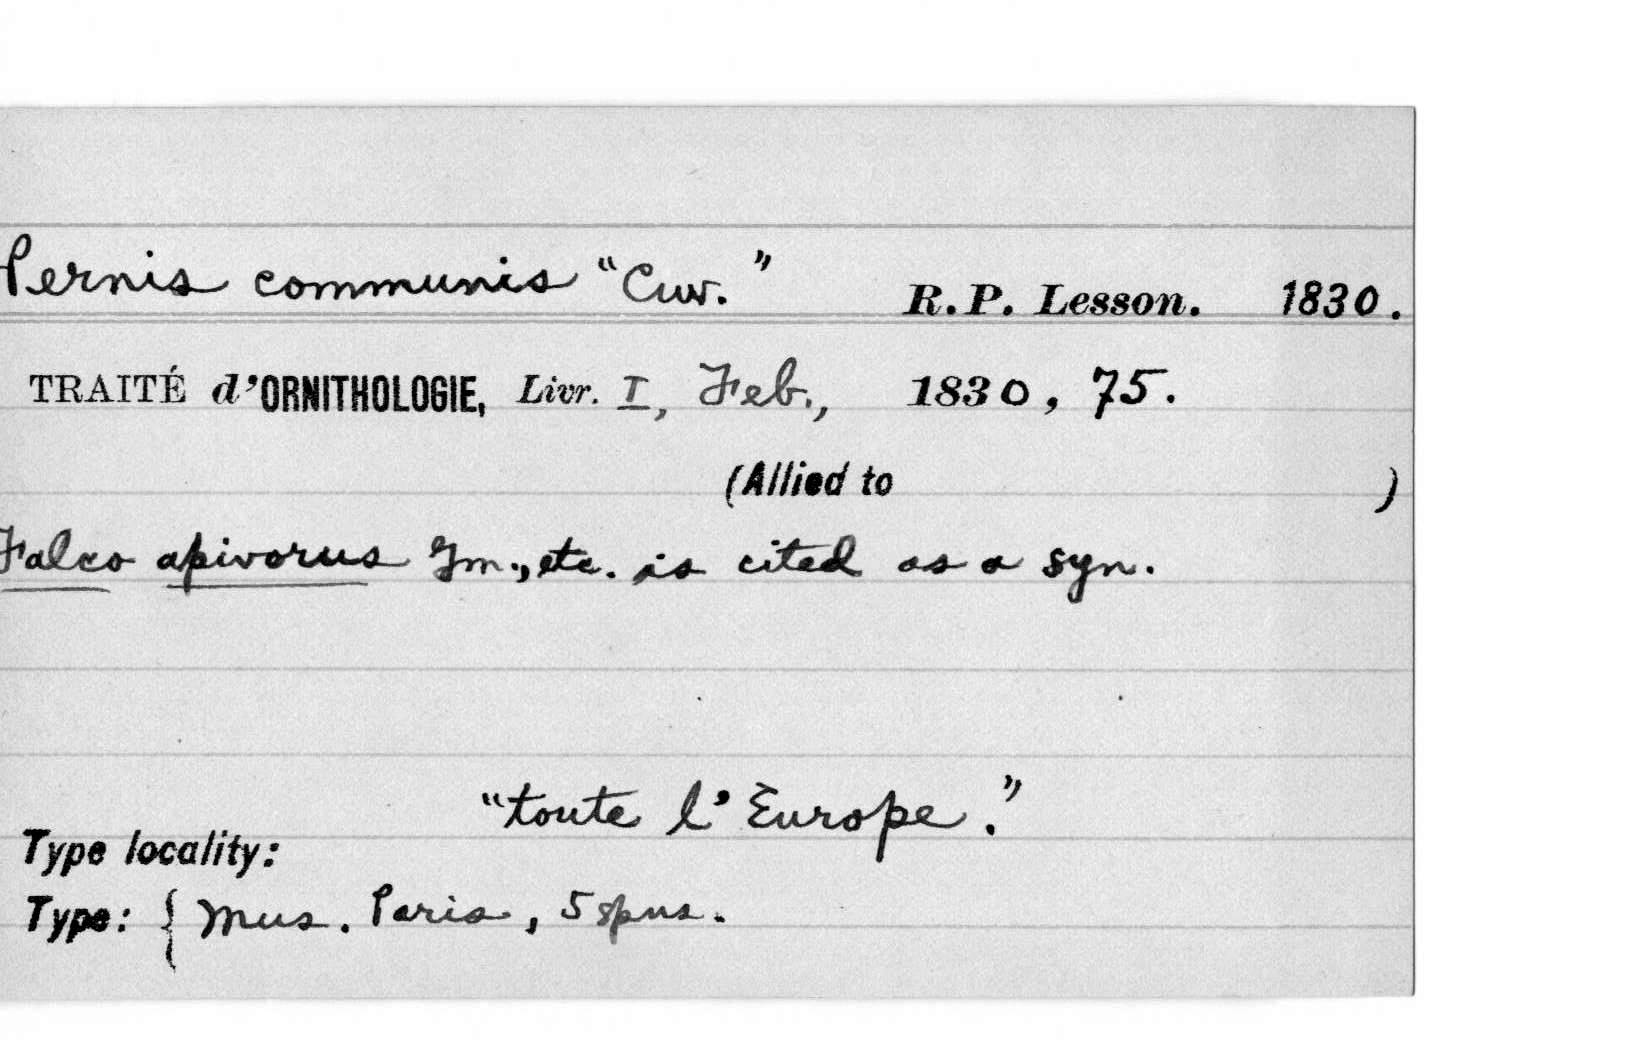 Pernis communis "Cuv." R.P. Lesson. 1830.
TRAITÉ d'ORNITHOLOGIE, Livr. I, Feb., 1830, 75.
(Allied to )
Falco apivorus Gm., etc. is cited as a syn.
"toute l'Europe."
Type locality:
Type: { Mus. Paris, 5 spms.